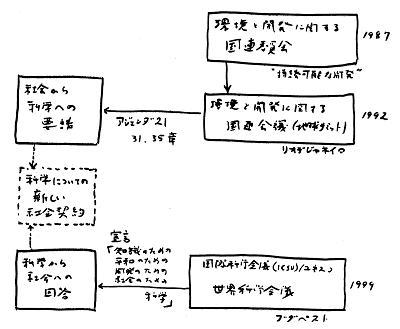 環境と開発に関する
国連委員会
1987
"持続可能な開発"
社会から
科学への
要請
アジェンダ21
31,35章
環境と開発に関する
国連会議(地球サミット)
1992
リオデジャネイロ
科学についての
新しい
社会契約
科学から
社会への
回答
宣言
「知識のための
平和のための
開発のための
社会のための
科学」
国際科学会議(ICSU)/ユネスコ
世界科学会議
1999
ブダペスト